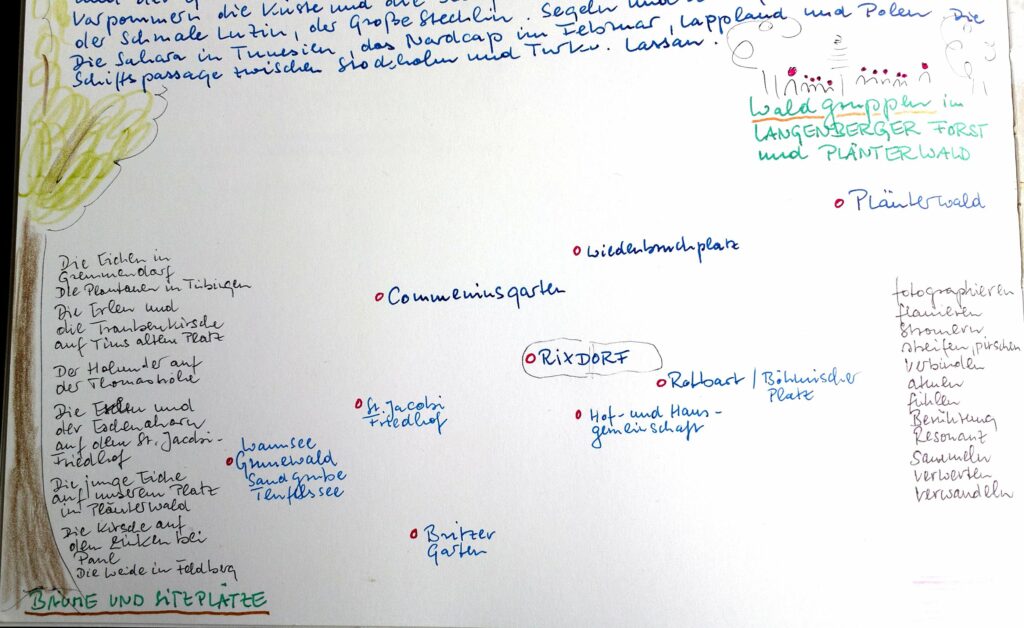 Vorpommern die Küste und die
der Schmale Luzin, der Große Stechlin. Segeln und
Die Sahara in Tunesien, das Nordcap im Februar, Lappland und Polen Die
Schiffspassage zwischen Stockholm und Turku. Lassan.
Waldgruppen im
LANGENBERGER FORST
und PLÄNTERWALD
Plänterwald
Wiedenbruchplatz
Commeniusgarten
RIXDORF
Rottbart / Böhmischer
Platz
Hof- und Haus-
gemeinschaft
St. Jacobi
Friedhof
Wannsee
Grunewald
Sandgrube
Teufelssee
Britzer
Garten
Die Eichen in
Gremmendorf
Die Plantanen in Tübingen
Die Erlen und
die Traubenkirsche
auf Tims altem Platz
Der Holunder auf
der Thomashöhe
Die und
der Eschenahorn
auf dem St. Jacobi-
Friedhof
Die junge Eiche
auf unserem Platz
im Plänterwald
Die Kirsche auf
den bei
Paul
Die Weide in Feldberg
BÄUME UND SITZPLÄTZE
fotographieren
flanieren
stromern
streifen, pirschen
verbinden
atmen
fühlen
Berührung
Resonanz
sammeln
verwerten
verwandeln